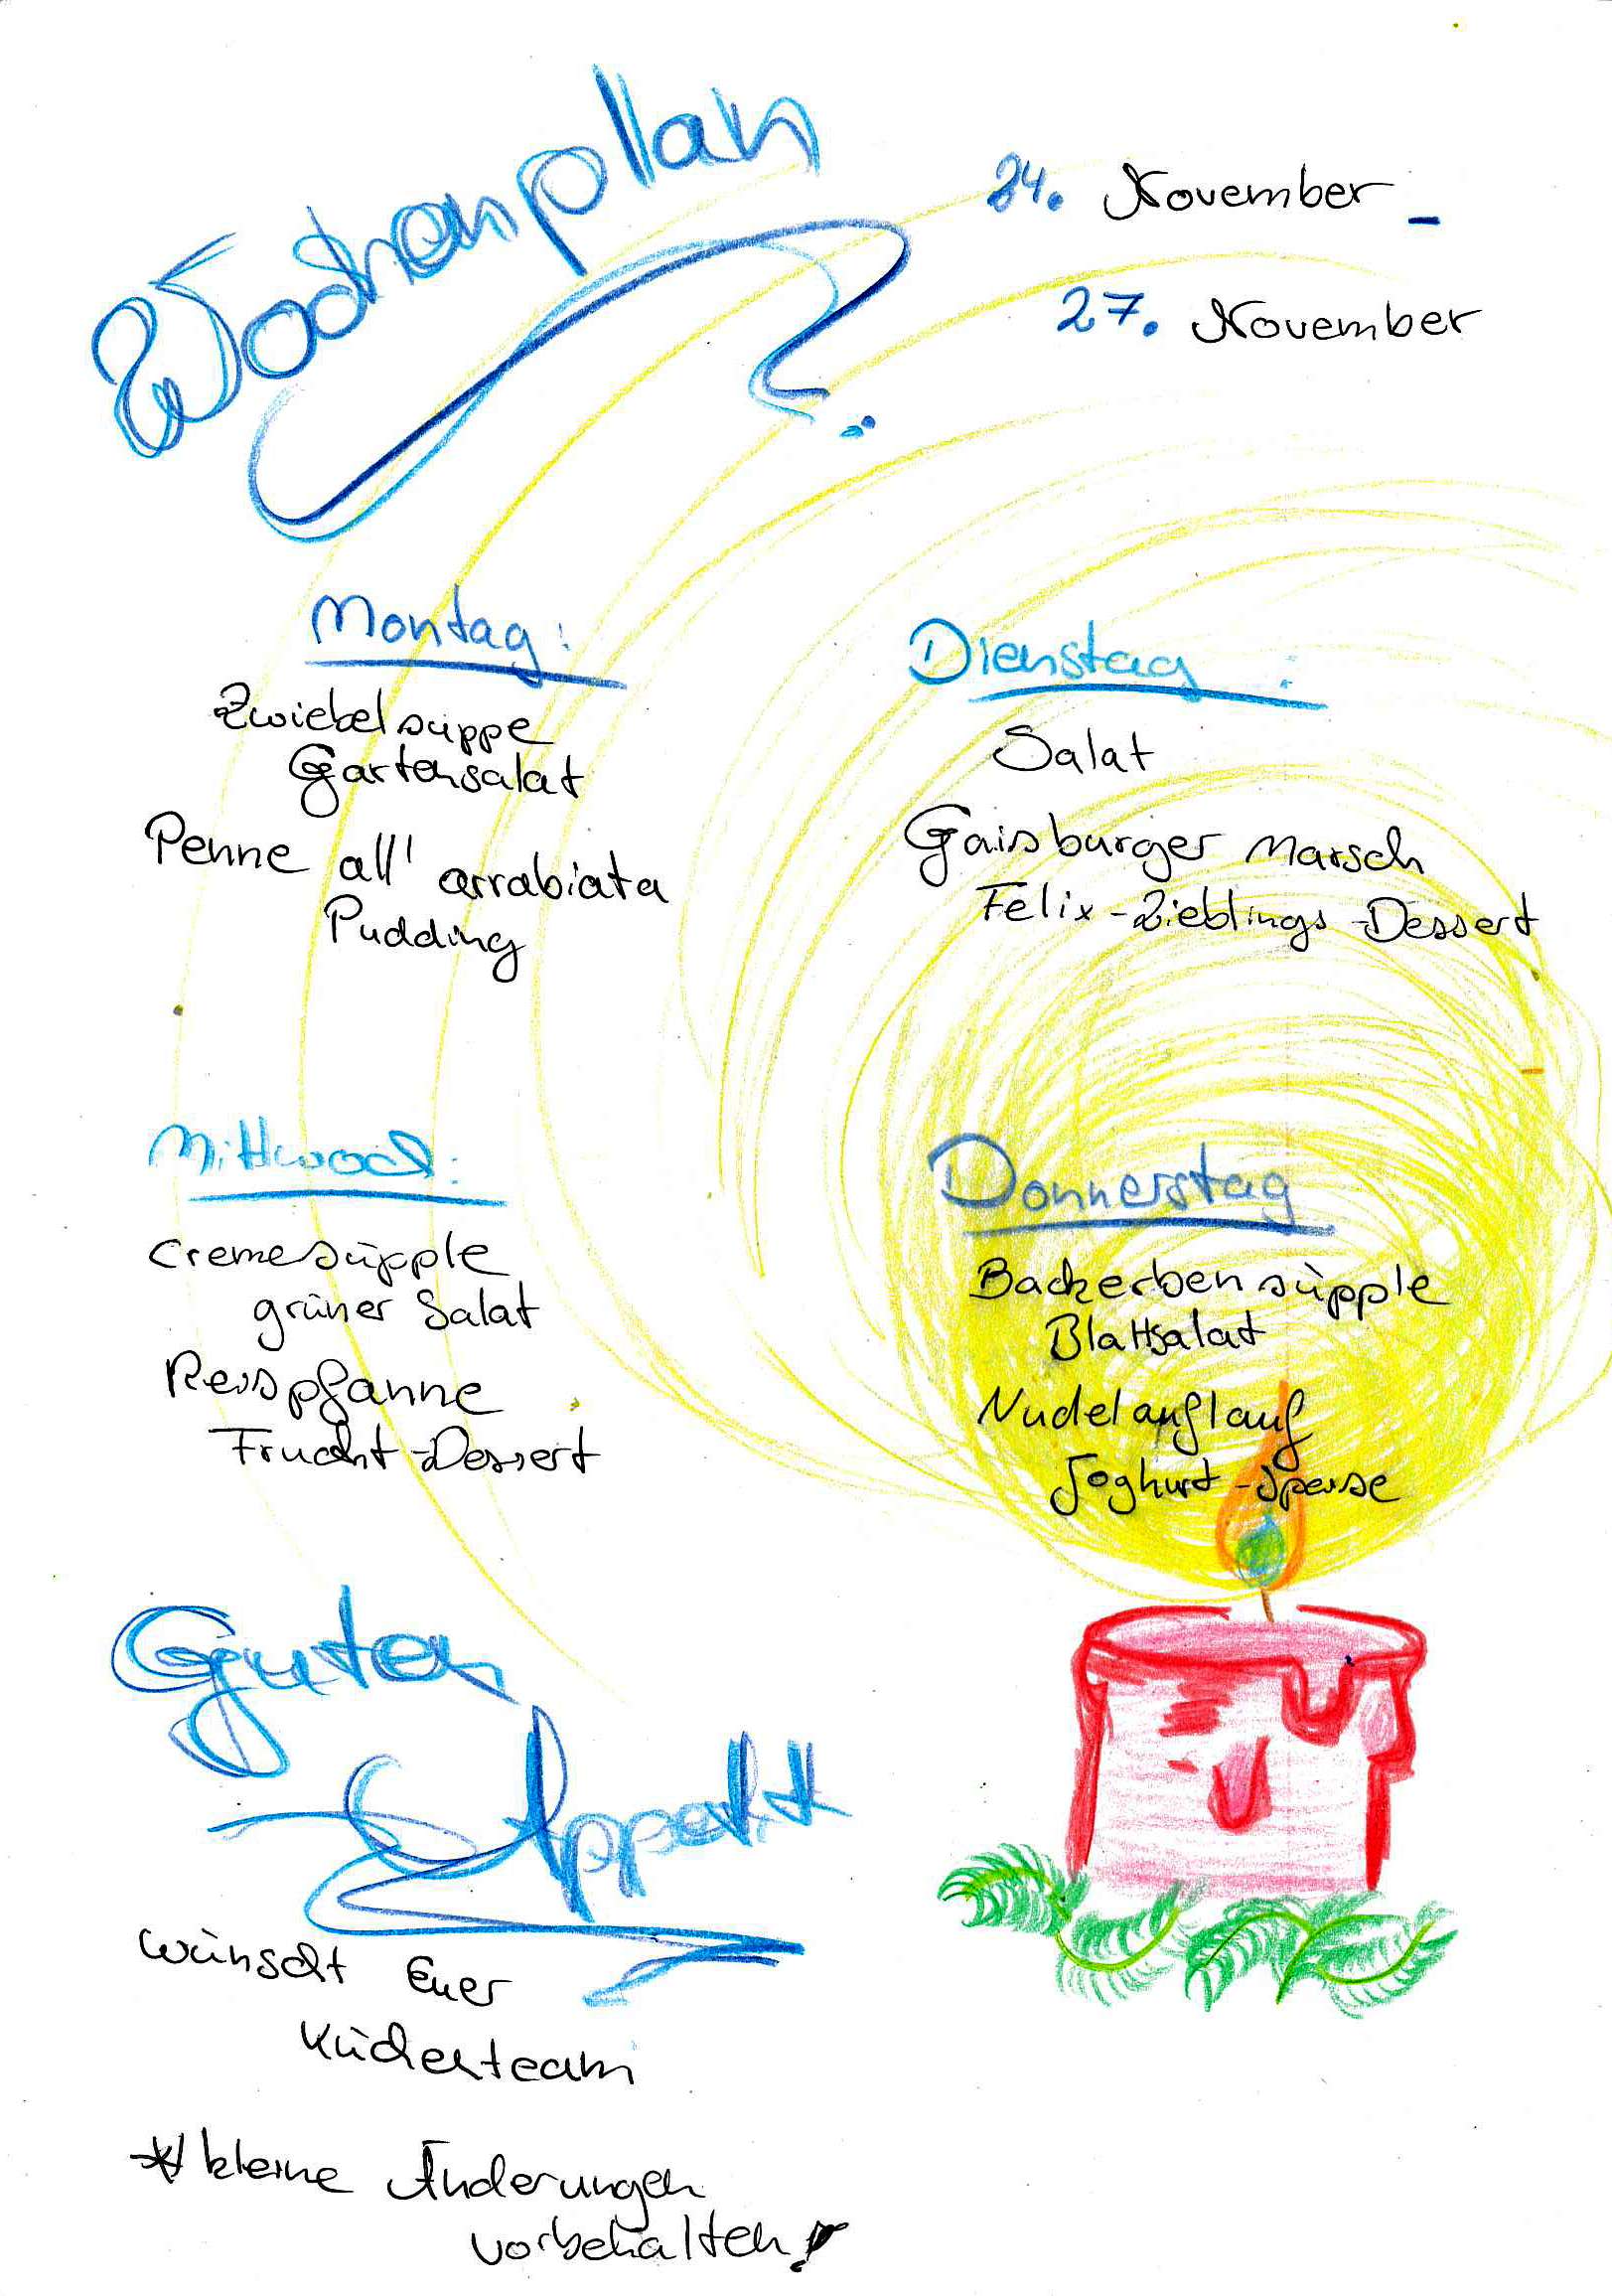 Wochenplan
24. November -
27. November
Montag:
Zwiebelsuppe
Gartensalat
Penne all' arrabiata
Pudding
Dienstag :
Salat
Gaisburger Marsch
Felix-Lieblings-Dessert
Mittwoch:
Cremesüpple
grüner Salat
Reispfanne
Frucht-Dessert
Donnerstag
Backerbensüpple
Blattsalat
Nudelauflauf
Joghurt-Speise
Guten
Appetit
wünscht Euer
Küchenteam
* kleine Änderungen
vorbehalten!